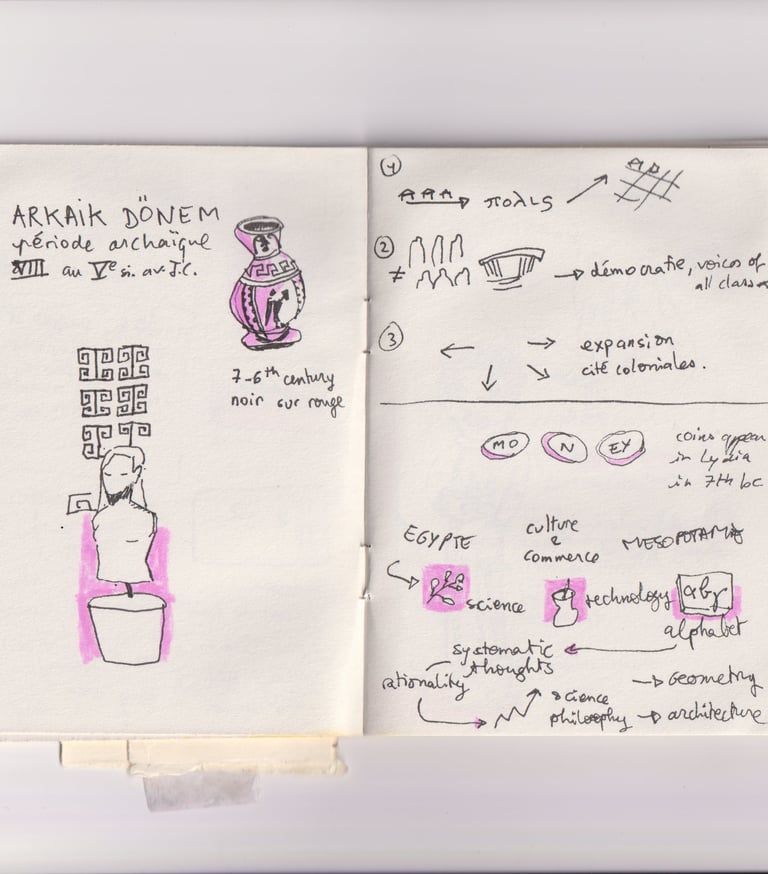 ARKAIK DÖNEM
période archaïque
VIII au Ve si. av. J.C.
7-6th century
noir sur rouge
1
πολις
2
≠
→ démocratie, voices of
all class
3
expansion
cité coloniales.
MO N EY
coins appear
in Lydia
in 7th bc
EGYPTE
culture
&
commerce
MESOPOTAMIA
science
technology
αβγ
alphabet
systematic
thoughts
rationality
→ Geometry
science
philosophy → architecture